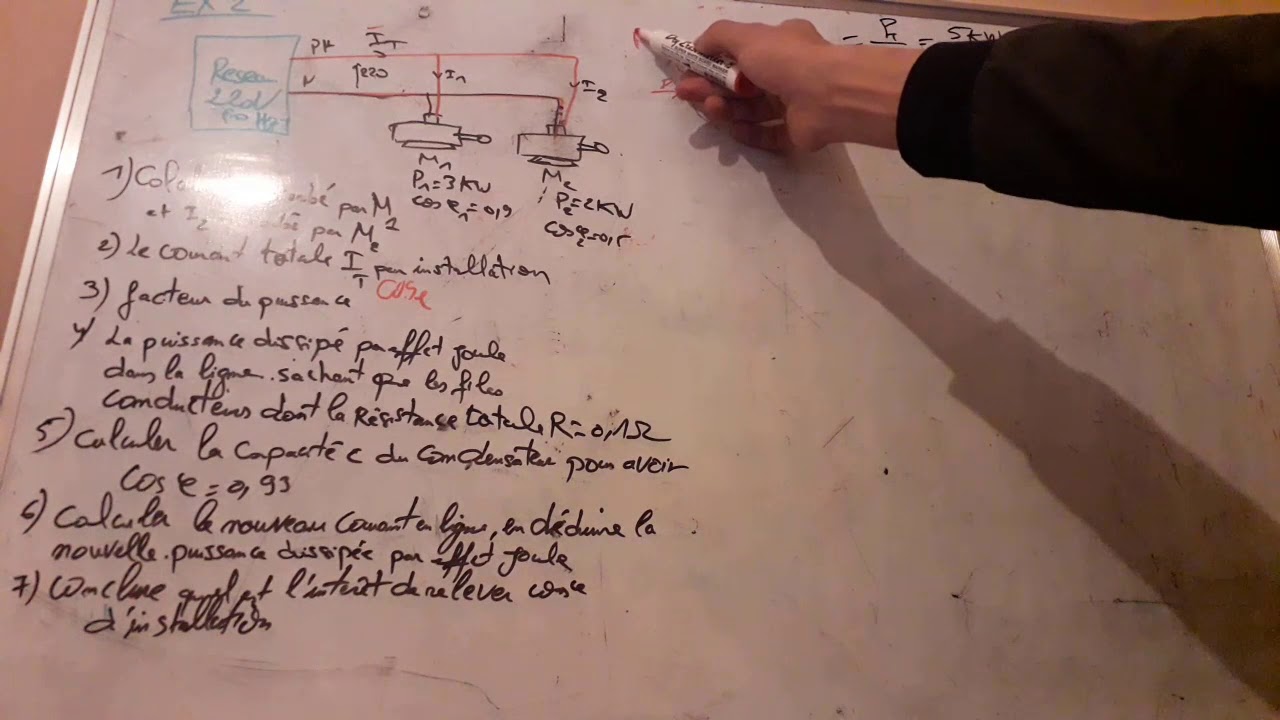 EX 2
PH
IT
= PT / = 5KW
Reseau
220V
50 Hz
N
220
I1
I2
M1
P1=3KW
cosφ1=0,9
M2
P2=2KW
cosφ2=0,
1) par M
et I2 par M2
2) Le courant totale IT par installation
3) facteur du puissence cosφ
4) La puissance dissipé par effet joule
dans la ligne. sachant que les files
conducteurs dont la Résistance totale R=0,1Ω
5) Calculer la capacité c du condensateur pour avoir
cos φ = 0,93
6) Calculer le nouveau courant en ligne, en déduire la
nouvelle puissance dissipée par effet joule
7) Conclure quel est l'intérêt de relever cosφ
d'installation